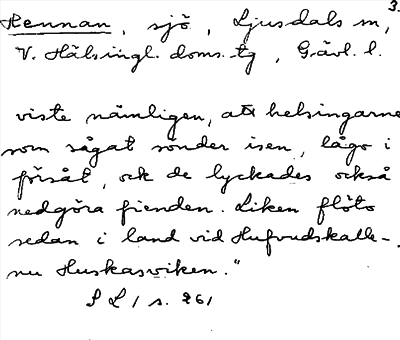 3.
Hennan, sjö, Ljusdals sn,
V. Hälsingl. doms.tg, Gävl. l.
viste nämligen, att helsingarne
som sågat sönder isen, lågo i
försåt, ock de lyckades också
nedgöra fienden. Liken flöto
sedan i land vid Hufvudskalle-,
nu Huskasviken."
S L 1 s. 261